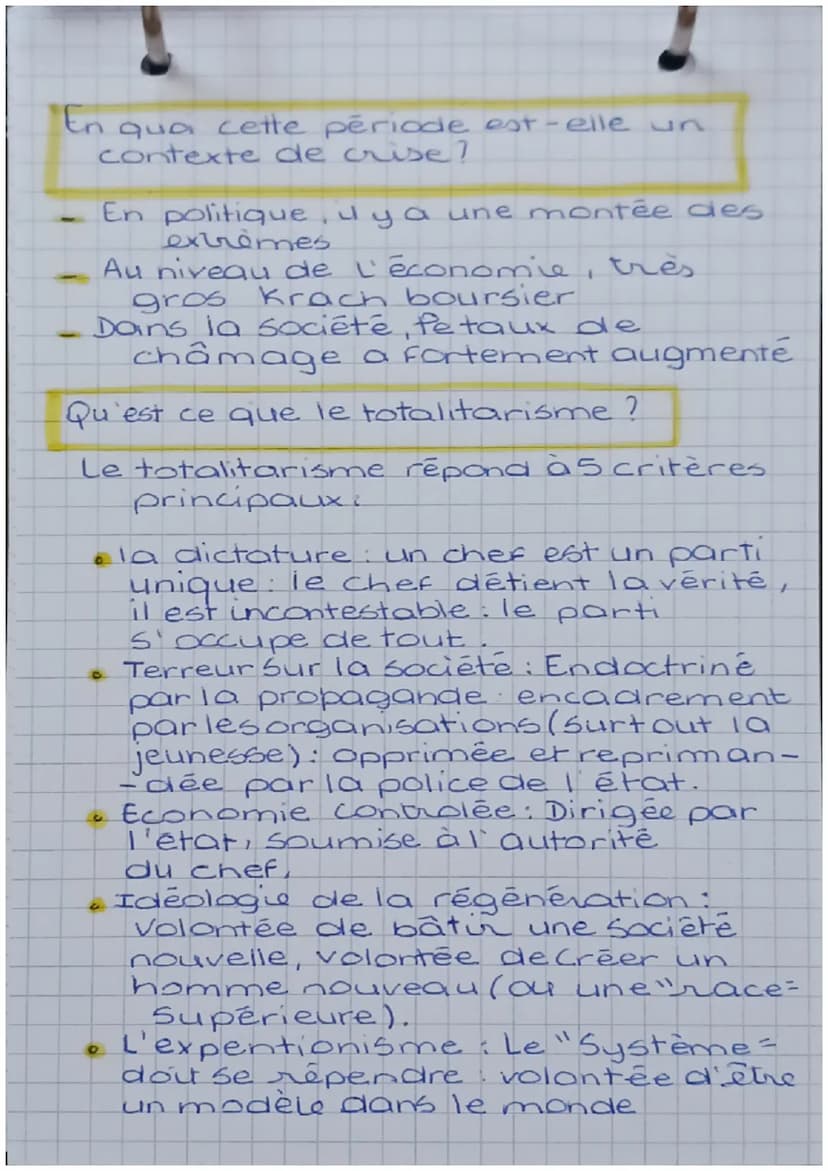 En qua cette période est-elle un
contexte de crise?
- En politique, il y a une montée des
extrêmes
- Au niveau de l'économie, très
gros Krach boursier
- Dans la société, le taux de
châmage a fortement augmenté
Qu'est ce que le totalitarisme?
Le totalitarisme répond à 5 critères
principaux:
• la dictature: un chef est un parti
unique: le chef détient la vérité,
il est incontestable: le parti
s'occupe de tout.
• Terreur sur la société: Endoctriné
par la propagande: encadrement
par les organisations (surtout la
jeunesse): opprimée et repriman-
-dée par la police de l'État.
• Economie controlée: Dirigée par
l'état, soumise à l'autorité
du chef,
• Idéologie de la régénération:
Volontée de bâtir une société
nouvelle, volontée de créer un
homme nouveau (ou une "race=
Supérieure).
• L'expentionisme: Le "Système=
doit se répendre: volontée d'être
un modèle dans le monde